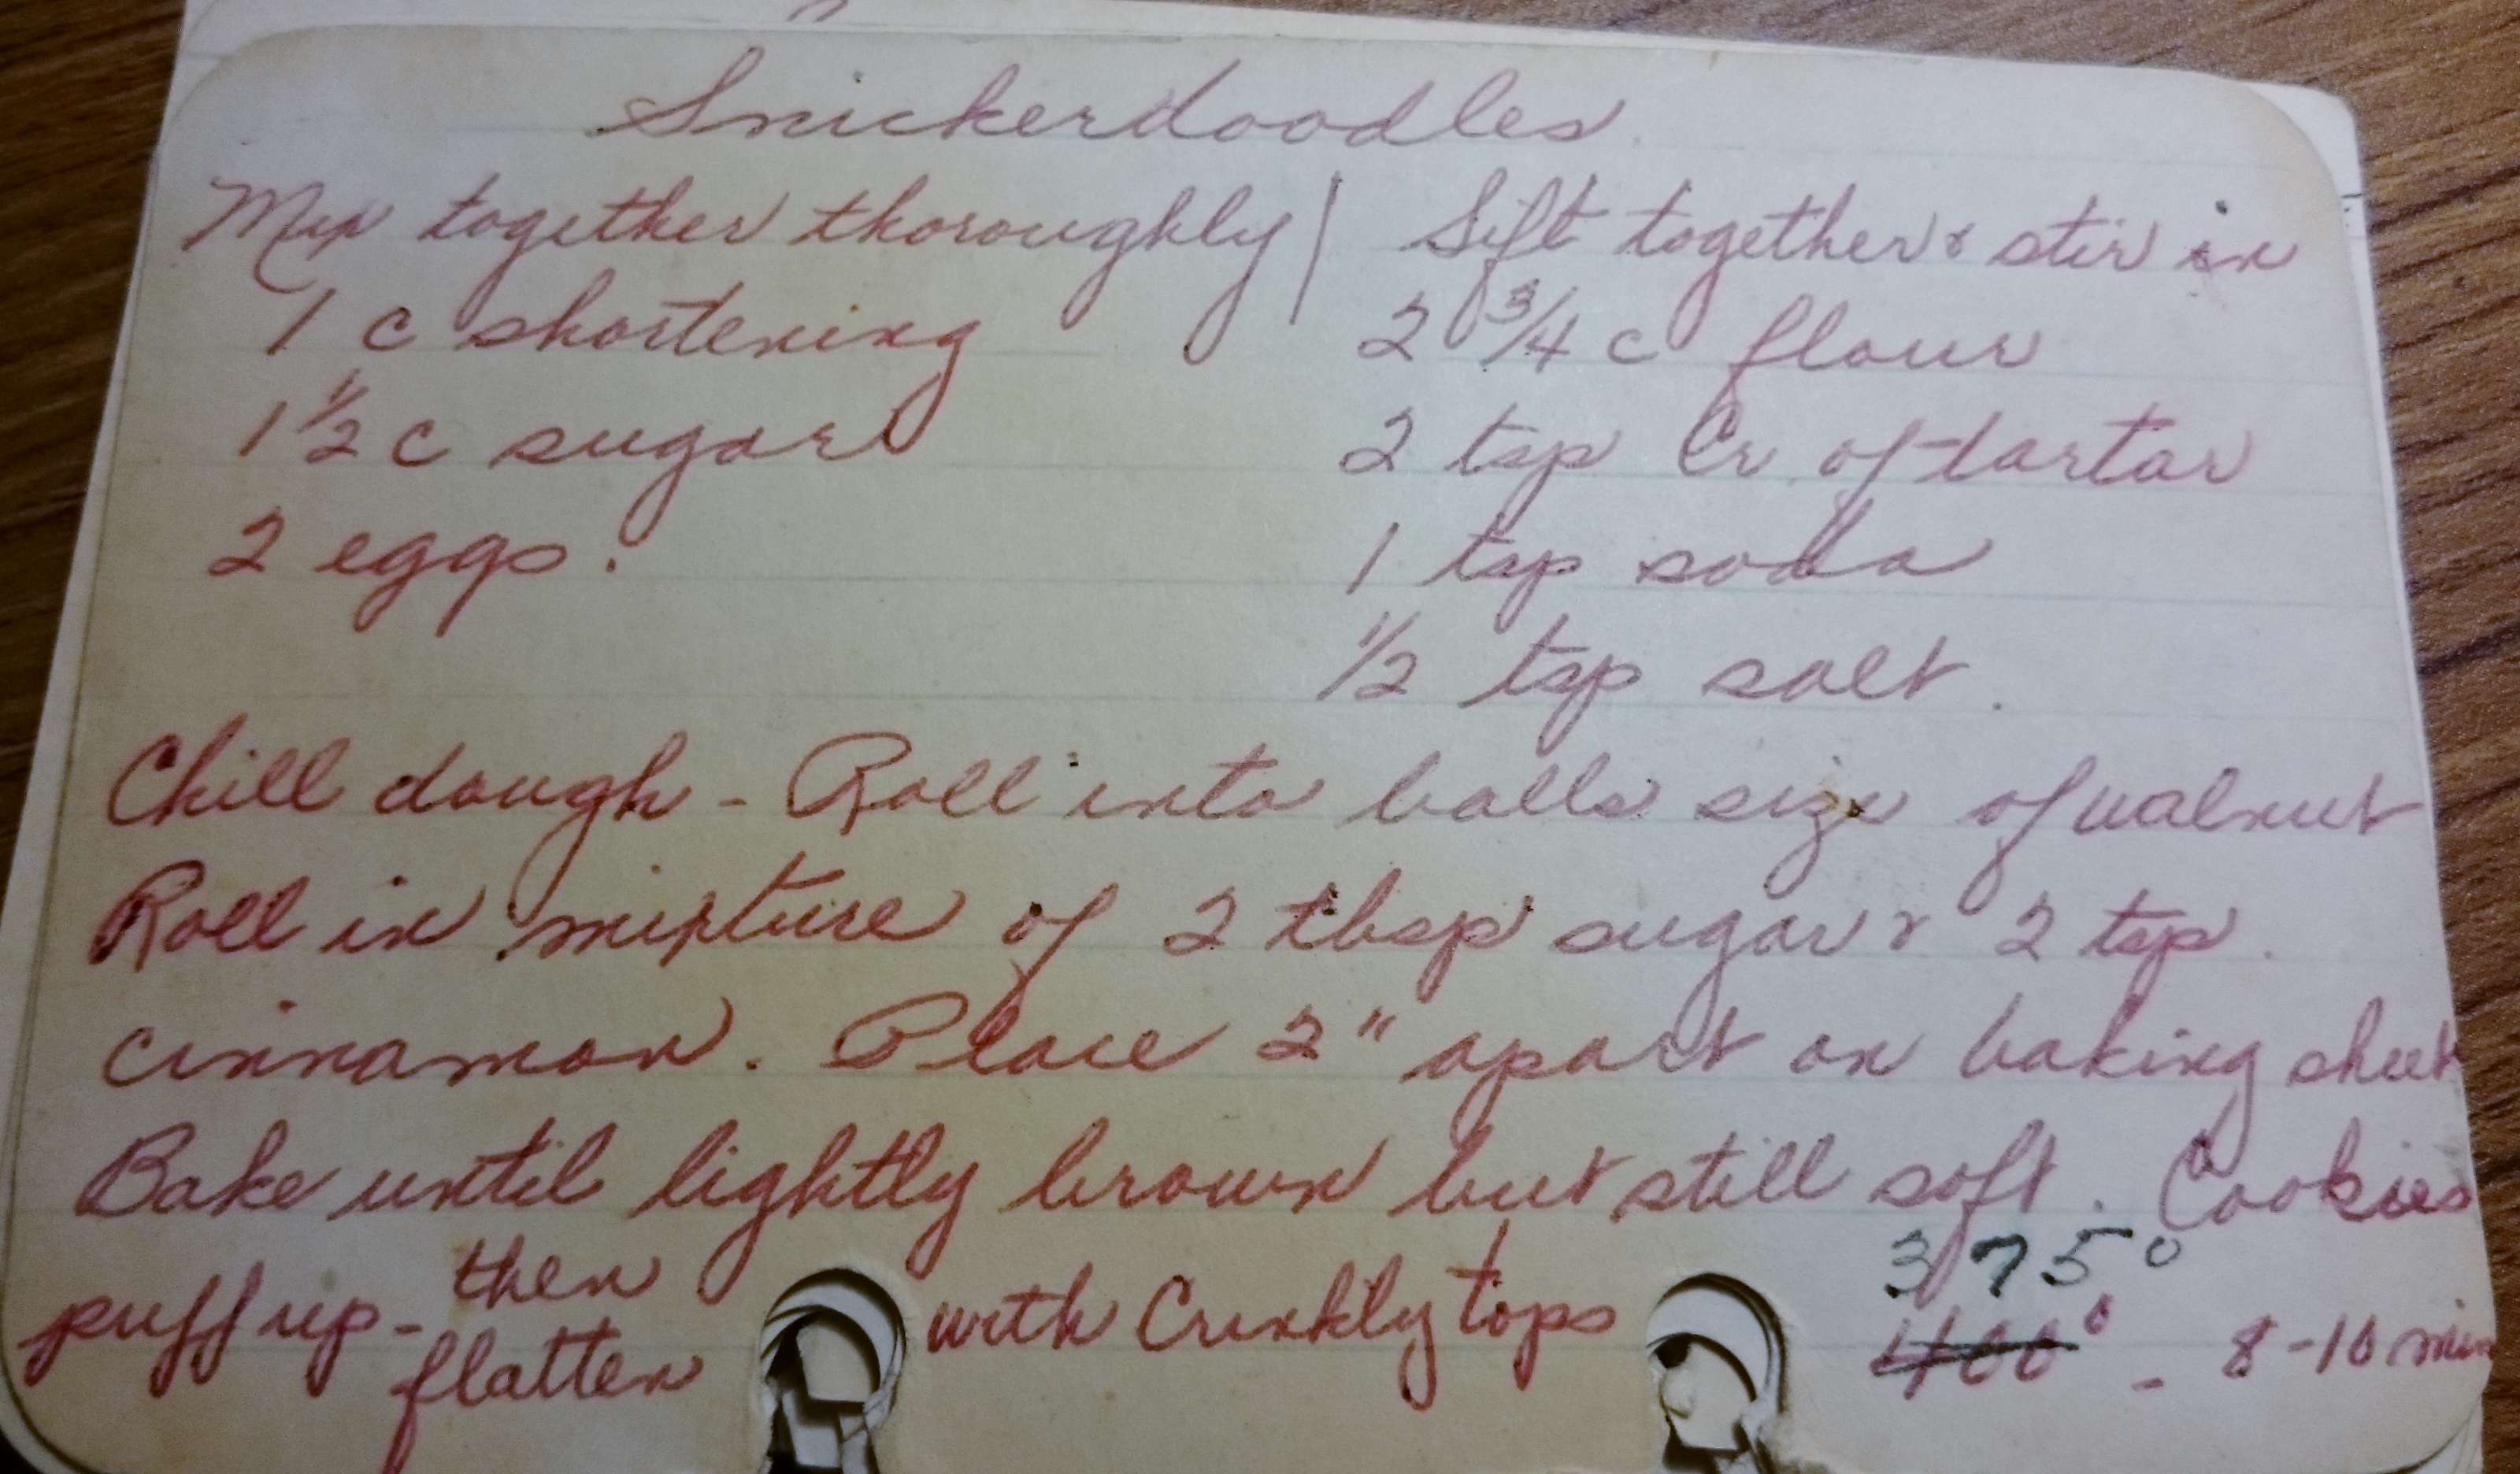 Snickerdoodles
Mix together thoroughly | Sift together & stir in
1 c shortening
1 1/2 c sugar
2 eggs.
2 3/4 c flour
2 tsp Cr. of tartar
1 tsp soda
1/2 tsp salt.
Chill dough - Roll into balls size of walnut
Roll in mixture of 2 tbsp sugar & 2 tsp.
cinnamon. Place 2" apart on baking sheet
Bake until lightly brown but still soft. Cookies
puff up - then flatten with Crinkly tops
375°
400° - 8-10 min